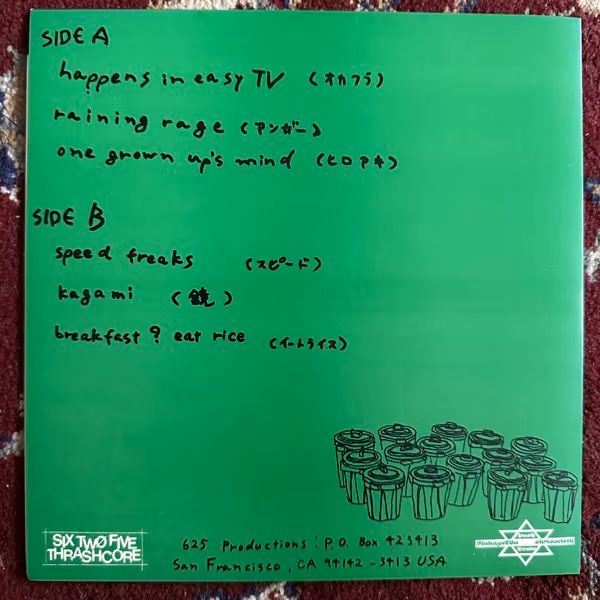 SIDE A
happens in easy TV (オカフラ)
raining rage (アンガー)
one grown up's mind (ヒロアキ)
SIDE B
speed freaks (スピード)
kagami (鏡)
breakfast? eat rice (イートライス)
SIX TWO FIVE
THRASHCORE
625 Productions: P.O. Box 423413
San Francisco, CA 94142-3413 USA